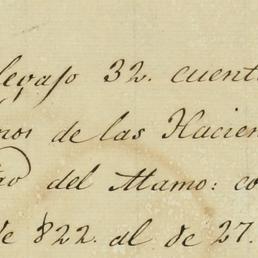 legajo 32. cuent
de las Hacien
del Alamo: co
de 822. al de 27.